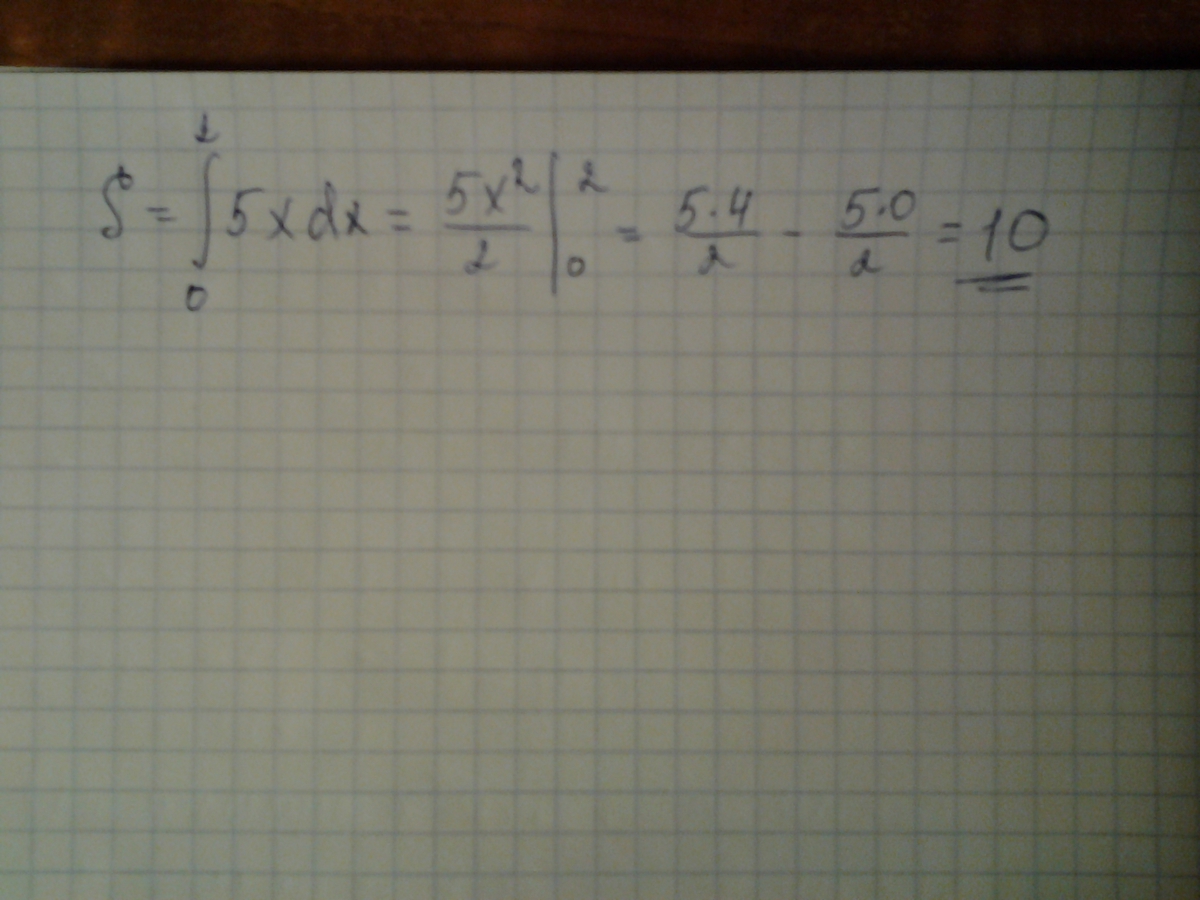 S = ∫₀² 5x dx = 5x²/2 |₀² = 5·4/2 - 5·0/2 = 10